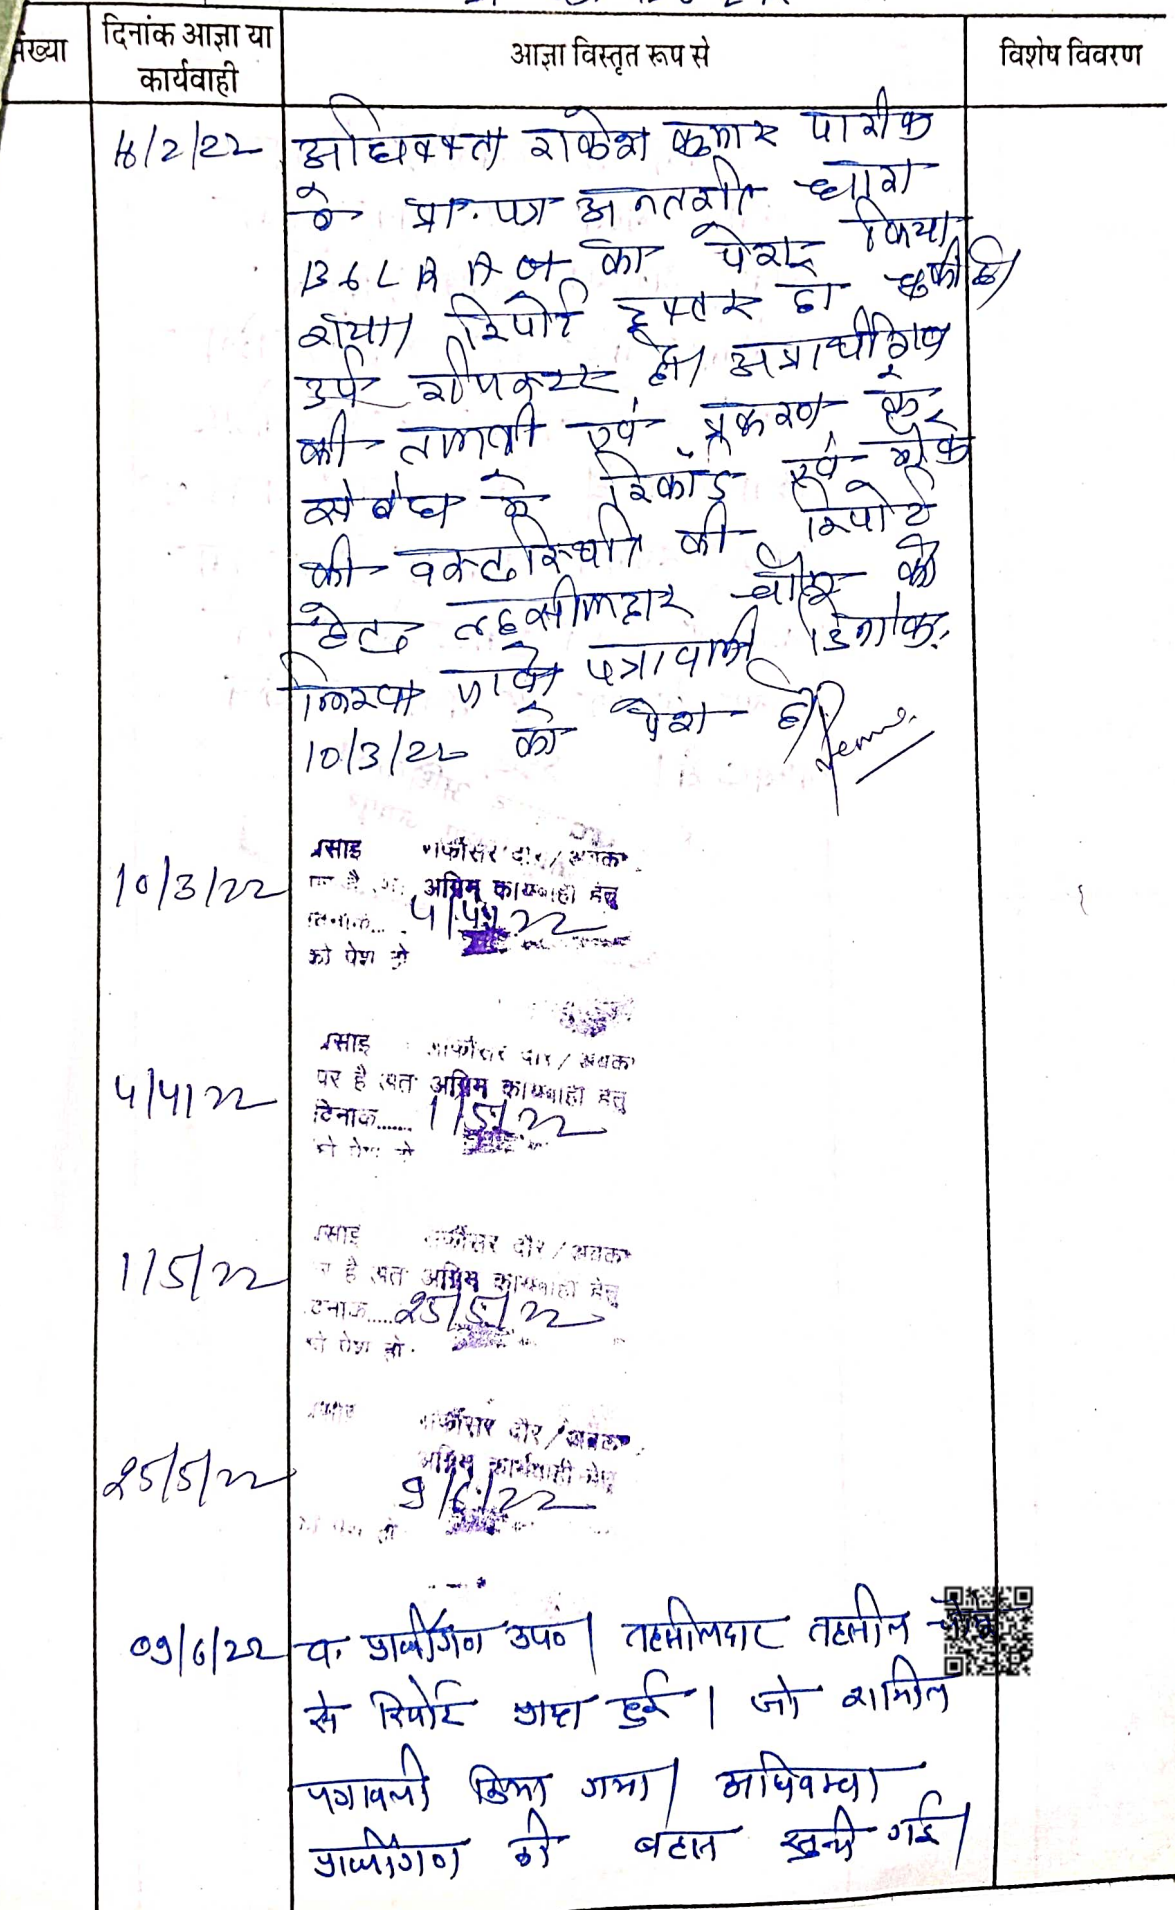 संख्या
दिनांक आज्ञा या
कार्यवाही
आज्ञा विस्तृत रूप से
विशेष विवरण
16/2/22
अधिवक्ता राकेश कुमार पारीक
ने प्रा. पत्र अन्तर्गत धारा
136 L R A का पेश किया
गया। रिपोर्ट दफ्तर हो चुकी है।
दर्ज रजिस्टर हो। अप्रार्थीगण
की तलबी एवं प्रकरण के
संबंध में रिकॉर्ड एवं मौके
की वस्तुस्थिति की रिपोर्ट
हेतु तहसीलदार को
लिखा जावे पत्रावली दिनांक
10/3/22 को पेश हो।
10/3/22
अग्रिम कार्यवाही हेतु
दिनांक... 4/4/22
को पेश हो
4/4/22
पर है अतः अग्रिम कार्यवाही हेतु
दिनांक...... 1/5/22
को पेश हो
1/5/22
है अतः अग्रिम कार्यवाही हेतु
दिनांक.....25/5/22
को पेश हो.
25/5/22
अग्रिम कार्यवाही हेतु
9/6/22
09/6/22
व. प्रार्थीगण उप०। तहसीलदार तहसील
से रिपोर्ट प्राप्त हुई। जो शामिल
पत्रावली किया गया। अधिवक्ता
प्रार्थीगण की बहस सुनी गई।